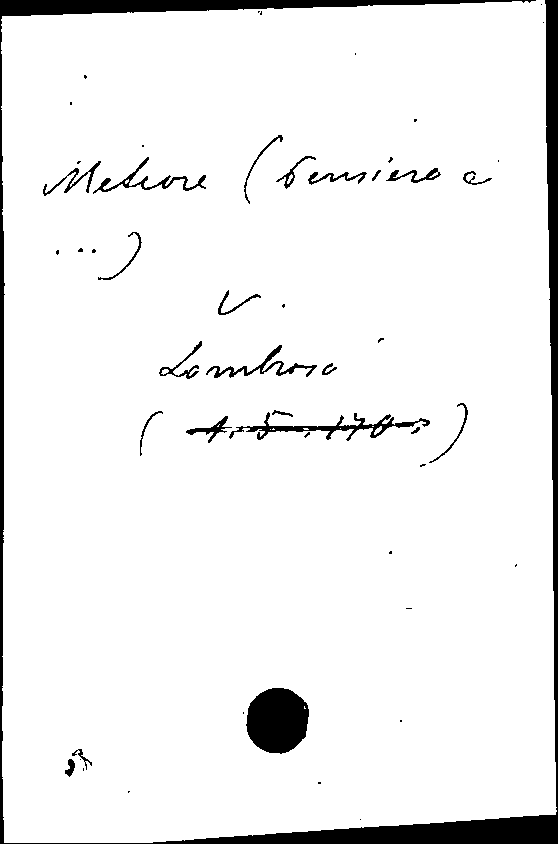 Meteore (Pensiero e
...)
V.
Lombroso
(1.5.170.)